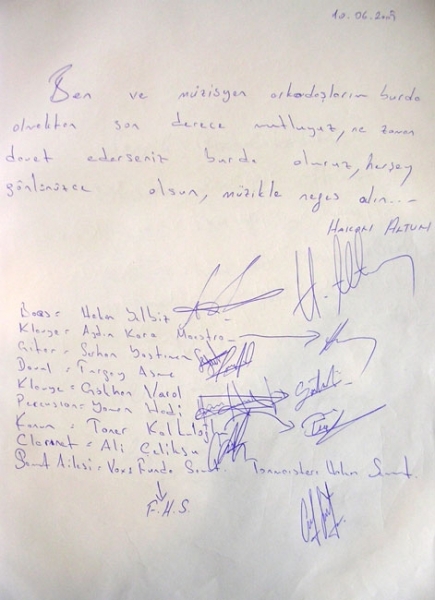 10.06.2009
Ben ve müzisyen arkadaşlarım burda
olmaktan son derece mutluyuz, ne zaman
davet ederseniz burda oluruz, herşey
gönlünüzce olsun, müzikle nefes alın...
HAKAN ALTUN
Bass = Hakan Yelbiz
Klavye = Aydın Kara Maestro
Gitar = Serkan
Davul = Turgay
Klavye = Gökhan Varol
Percussion = Hadi
Kanun = Taner
Clarnet = Ali Çeliksu
Sanat Ailesi = Funda Sanat.
F.H.S.